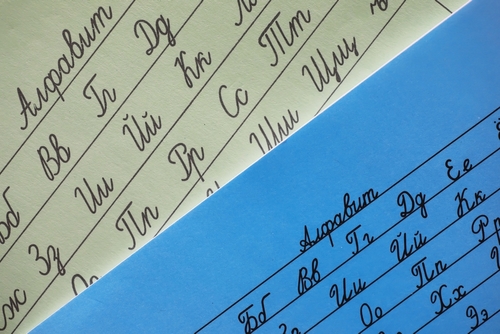 Алфавит
Бб Вв Гг Дд
Жж Зз Ии Йй Кк
Оо Пп Рр Сс Тт
Шш Щщ
Алфавит
Бб Вв Гг Дд Ее
Зз Ии Йй Кк
Оо Пп Рр
Хх
Ээ